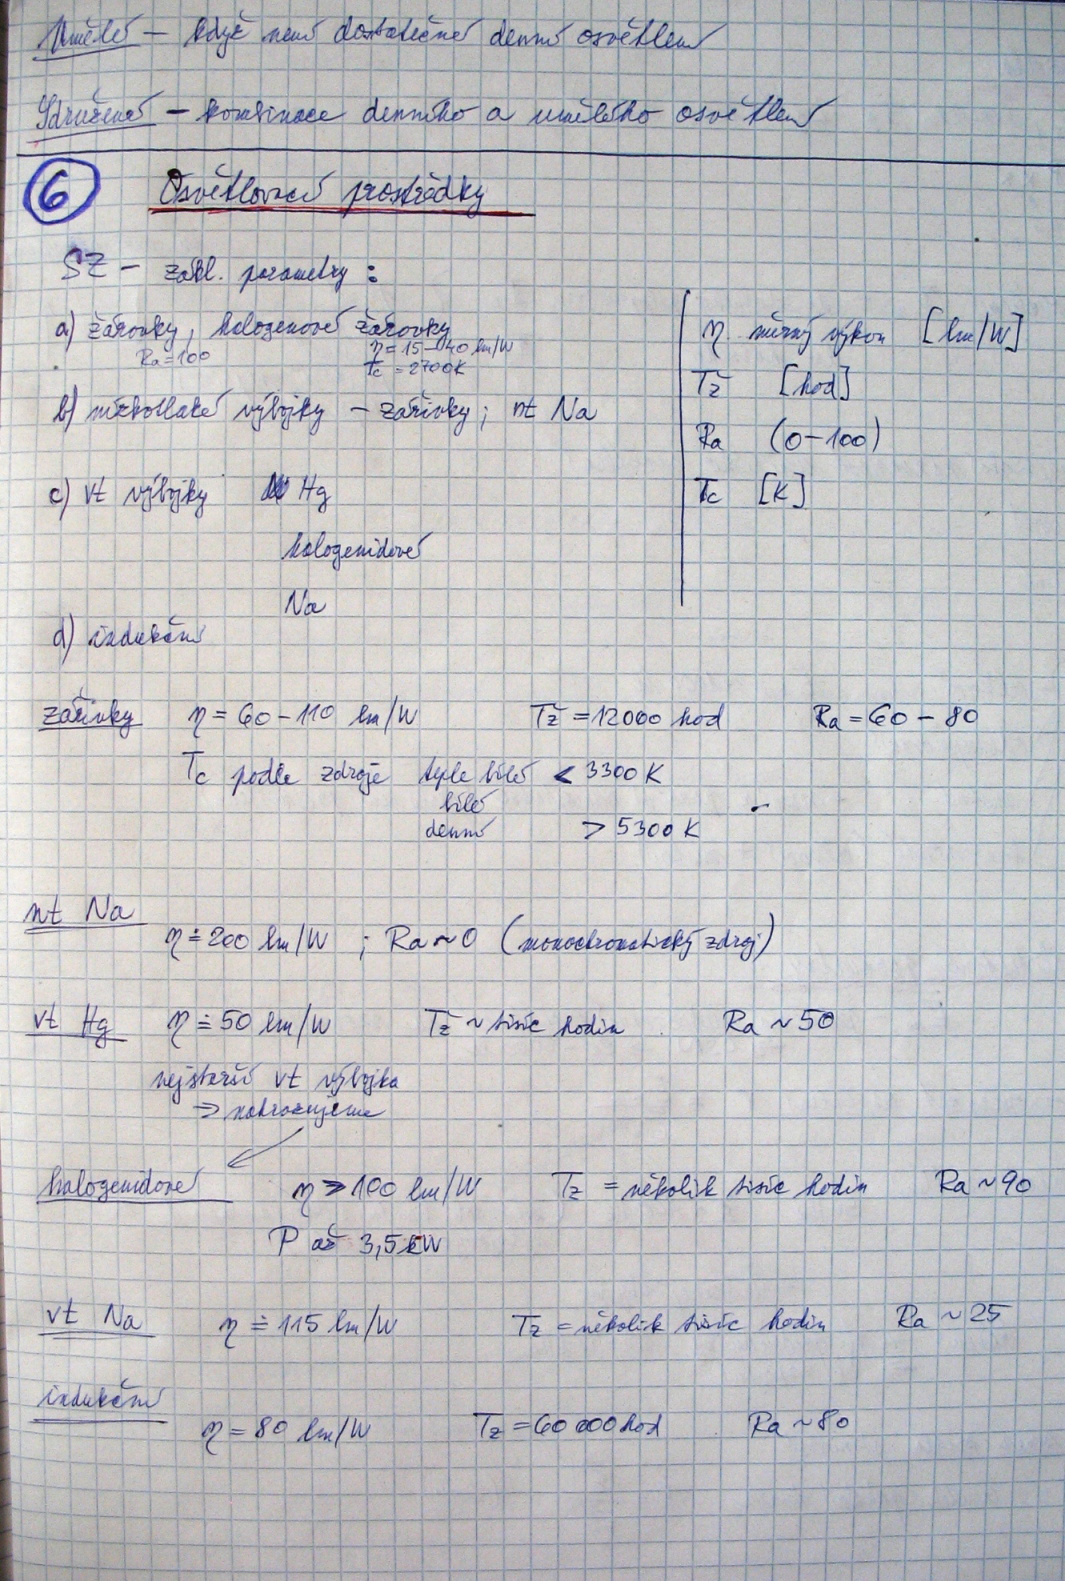 Umělé – když není dostatečné denní osvětlení
Sdružené – kombinace denního a umělého osvětlení
6 Osvětlovací prostředky
SZ – zákl. parametry :
a) žárovky, halogenové žárovky
Ra=100 η=15–40 lm/W
Tc = 2700K
b) nízkotlaké výbojky – zářivky ; nt Na
c) vt výbojky Hg
halogenidové
Na
d) indukční
η měrný výkon [lm/W]
Tž [hod]
Ra (0–100)
Tc [K]
zářivky η = 60–110 lm/W Tž = 12000 hod Ra = 60 – 80
Tc podle zdroje teple bílé < 3300 K
bílé
denní > 5300 K
nt Na
η ≐ 200 lm/W ; Ra ~ 0 (monochromatický zdroj)
vt Hg η ≐ 50 lm/W Tž ~ tisíc hodin Ra ~ 50
nejstarší vt výbojka
⇒ nahrazujeme
halogenidové η > 100 lm/W Tž = několik tisíc hodin Ra ~ 90
P až 3,5 kW
vt Na η ≐ 115 lm/W Tž = několik tisíc hodin Ra ~ 25
indukční
η = 80 lm/W Tž = 60 000 hod Ra ~ 80